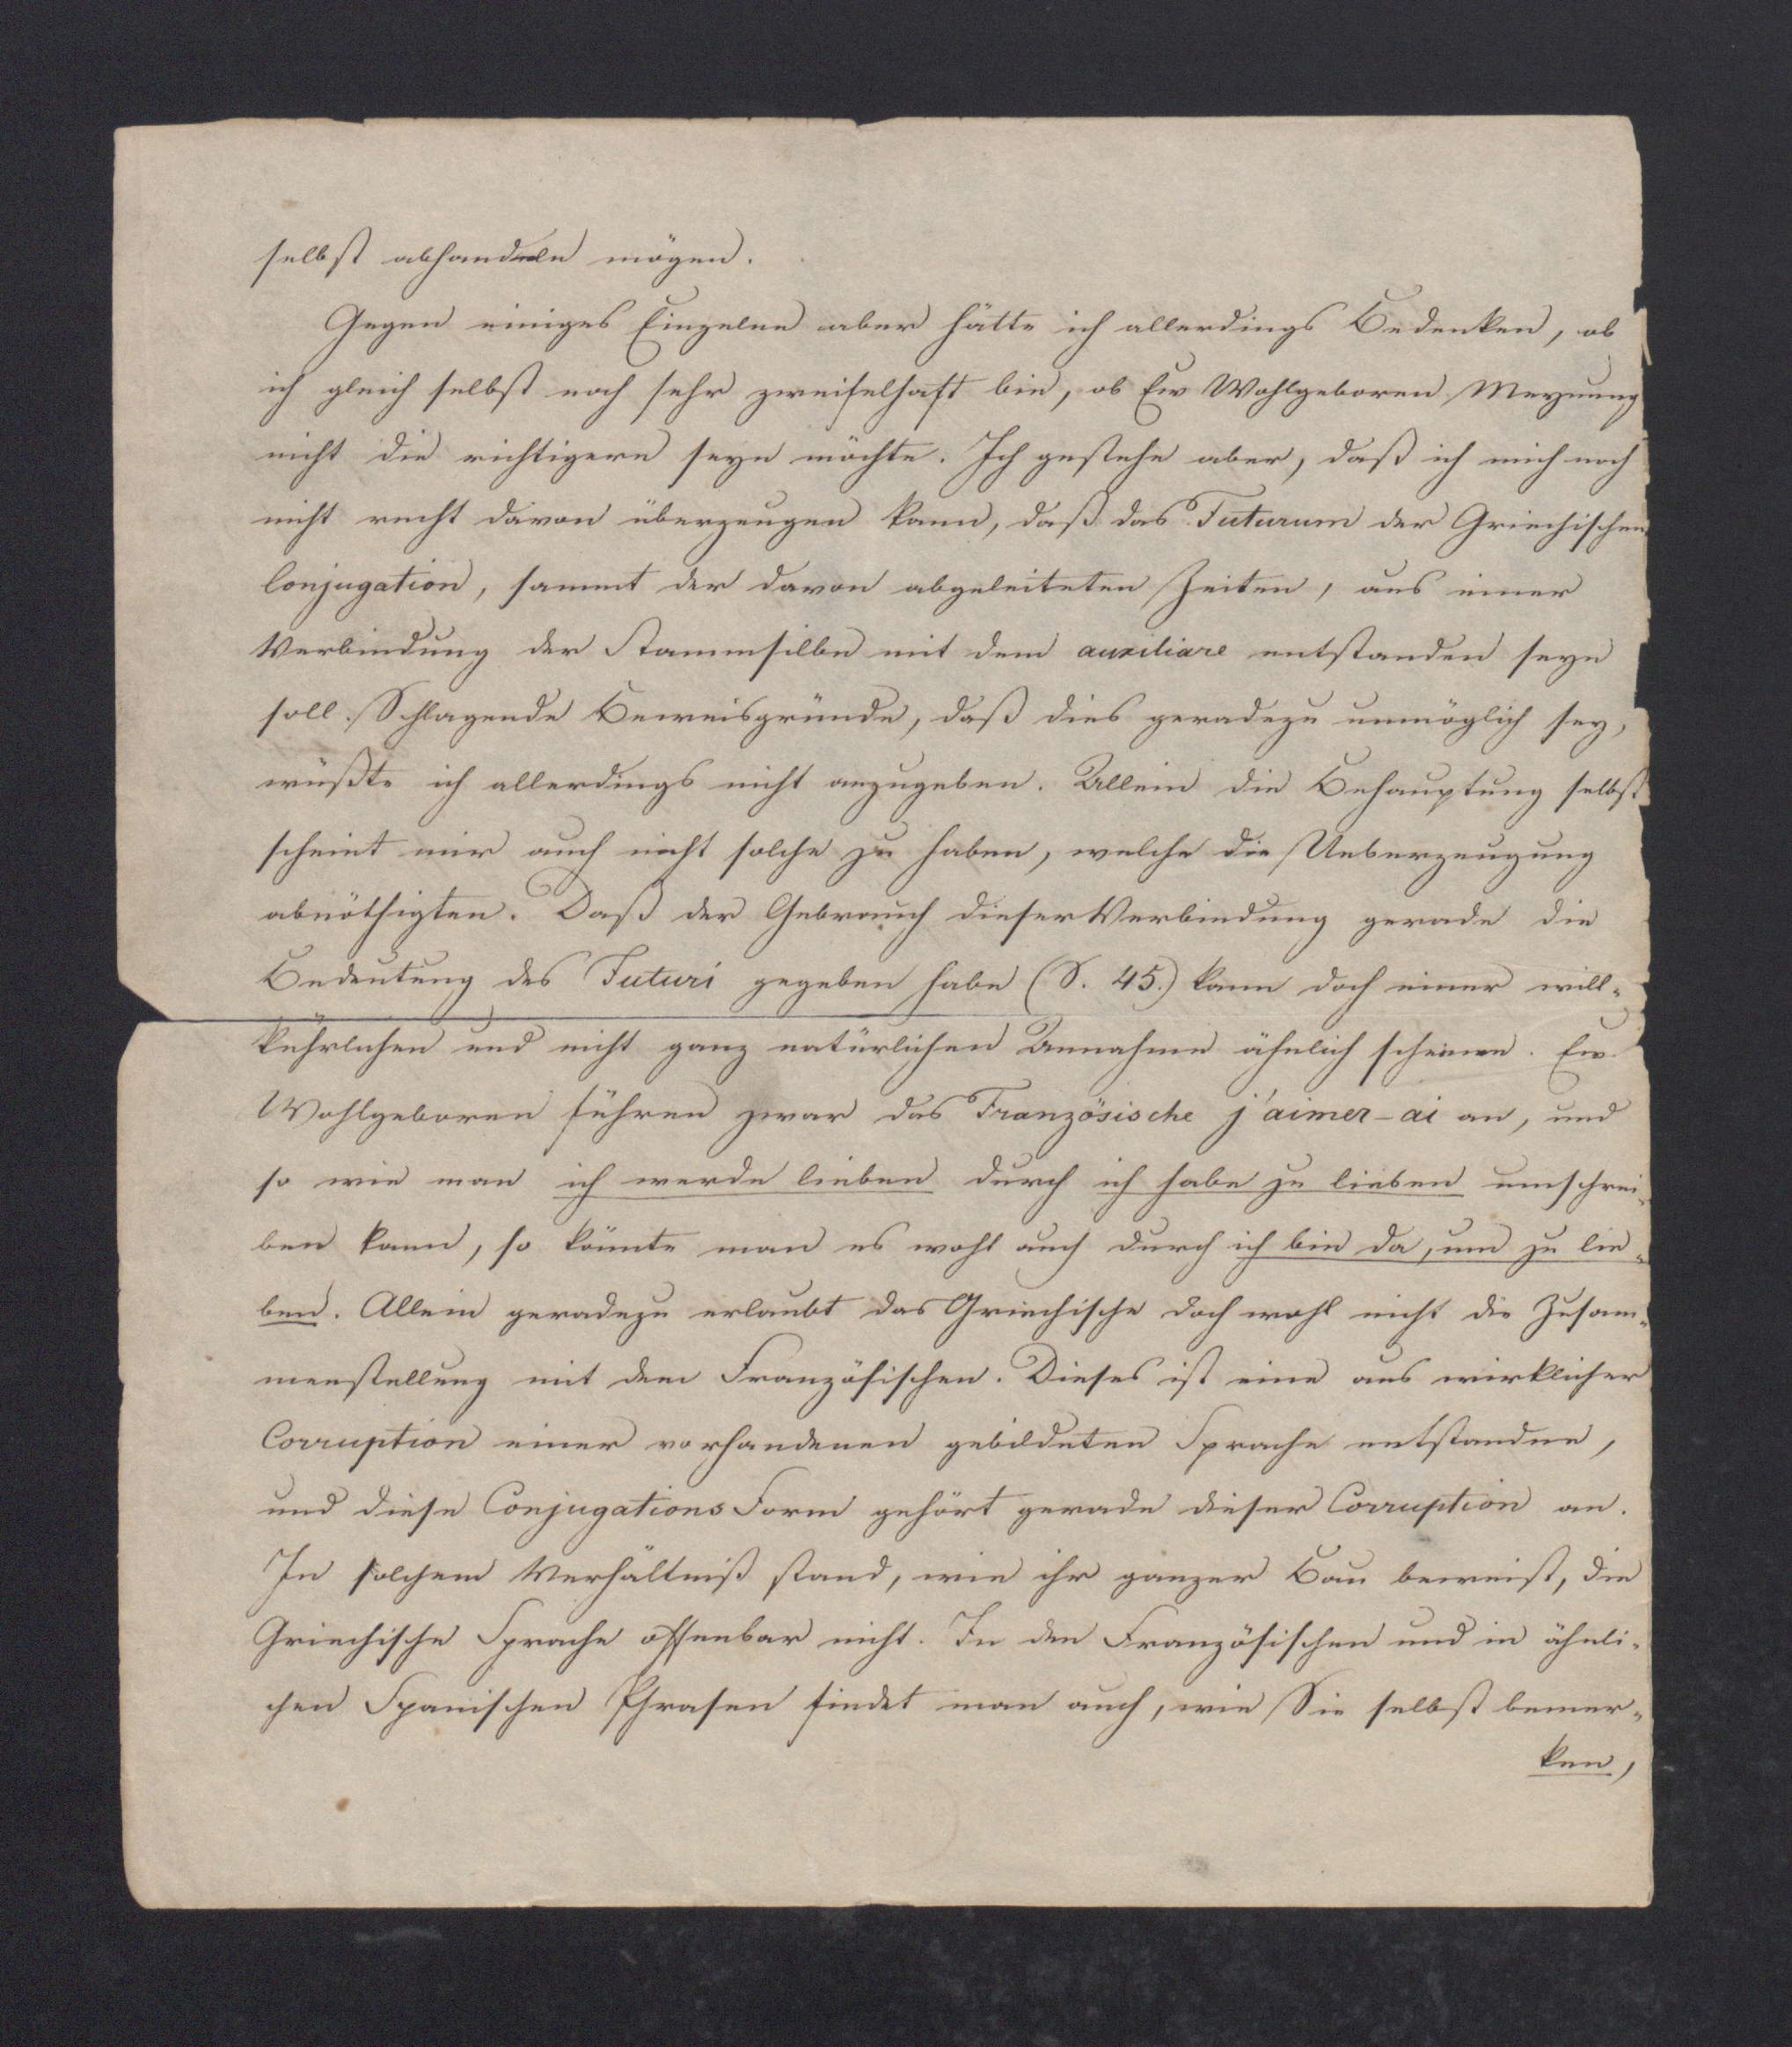 selbst abhandeln mögen.
Gegen einiges Einzelne aber hätte ich allerdings Bedenken, ob
ich gleich selbst noch sehr zweifelhaft bin, ob Ew Wohlgeboren Meynung
nicht die richtigere seyn möchte. Ich gestehe aber, daß ich mich noch
nicht recht davon überzeugen kann, daß das Futurum der Griechischen
Conjugation, sammt der davon abgeleiteten Zeiten, aus einer
Verbindung der Stammsilbe mit dem auxiliare entstanden seyn
soll. Schlagende Beweisgründe, daß dies geradezu unmöglich sey,
wüßte ich allerdings nicht anzugeben. Allein die Behauptung selbst
scheint mir auch nicht solche zu haben, welche die Ueberzeugung
abnöthigten. Daß der Gebrauch dieser Verbindung gerade die
Bedeutung des Futuri gegeben habe (S. 45.) kann doch einer will-
kührlichen und nicht ganz natürlichen Annahme ähnlich scheinen. Ew.
Wohlgeboren führen zwar das Französische j'aimer-ai an, und
so wie man ich werde lieben durch ich habe zu lieben umschrei-
ben kann, so könnte man es wohl auch durch ich bin da, um zu lie-
ben. Allein geradezu erlaubt das Griechische doch wohl nicht die Zusam-
menstellung mit dem Französischen. Dieses ist eine aus wirklicher
Corruption einer vorhandenen gebildeten Sprache entstandne,
und diese Conjugations Form gehört gerade dieser Corruption an.
In solchem Verhältniß stand, wie ihr ganzer Bau beweist, die
Griechische Sprache offenbar nicht. In den Französischen und in ähnli-
chen Spanischen Phrasen findet man auch, wie Sie selbst bemer-
ken,